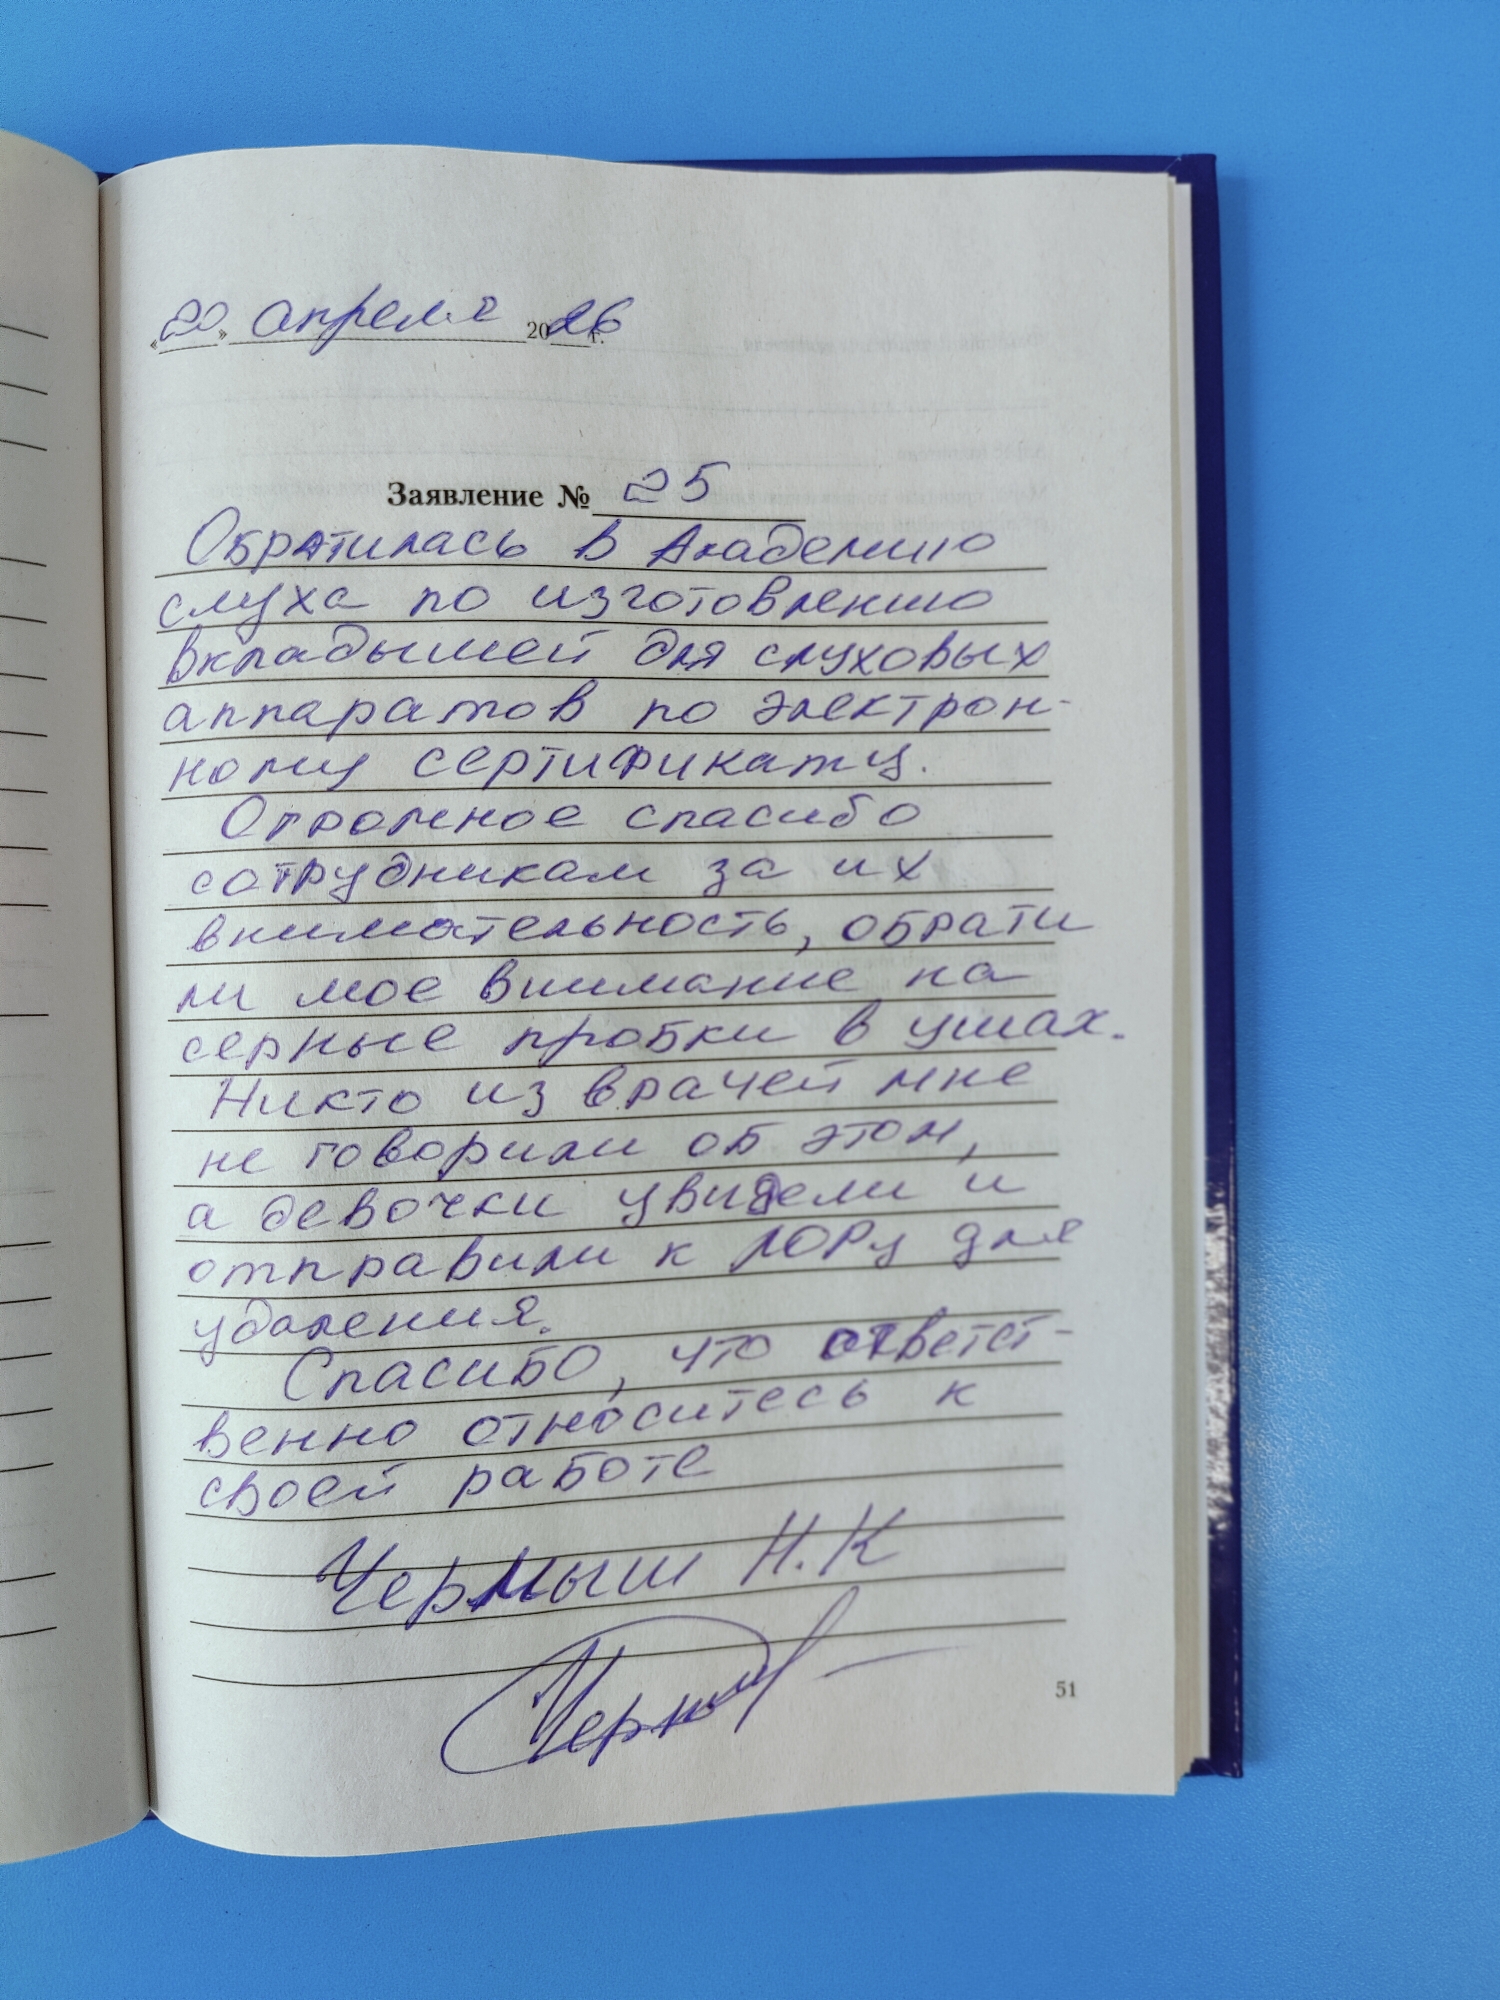 «20» апреля 2026 г.
Заявление № 25
Обратилась в Академию
слуха по изготовлению
вкладышей для слуховых
аппаратов по электрон-
ному сертификату.
Огромное спасибо
сотрудникам за их
внимательность, обрати
ли мое внимание на
серные пробки в ушах.
Никто из врачей мне
не говорили об этом,
а девочки увидели и
отправили к ЛОРу для
удаления.
Спасибо, что ответст-
венно относитесь к
своей работе
Чермыш Н.К
51